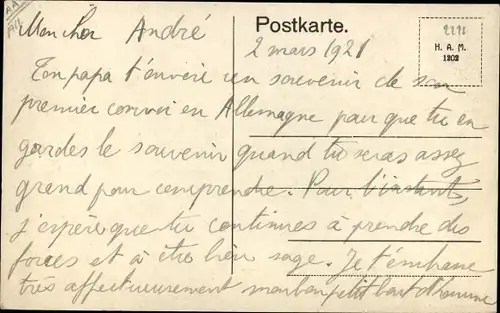 Mon cher André
Postkarte.
H. A. M.
1202
2 mars 1921
Ton papa t'envoie un souvenir de son
premier convoi en Allemagne pour que tu en
gardes le souvenir quand tu seras assez
grand pour comprendre. Pour l'instant,
j'espère que tu continues à prendre des
forces et à être bien sage. Je t'embrasse
très affectueusement mon bon petit bout d'homme